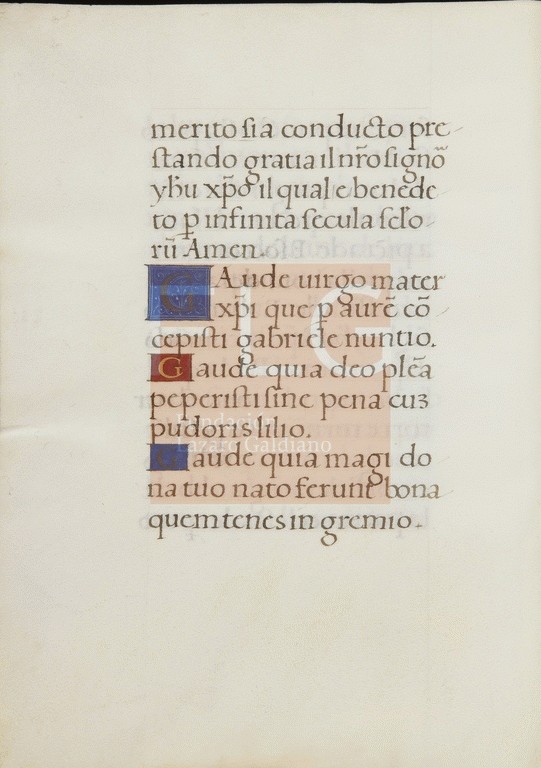 merito sia conducto pre
stando gratia il nr̄o signō
yh̄u xp̄o il quale benede
to p̲ infinita secula sclo
rū Amen.
GAude uirgo mater
xp̄i que p̲ aurē cō
cepisti gabriele nuntio.
Gaude quia deo plēa
peperisti sine pena cuʒ
pudoris lilio.
Gaude quia magi do
na tuo nato ferunt bona
quem tenes in gremio.
FLG
Fundación
Lázaro Galdiano